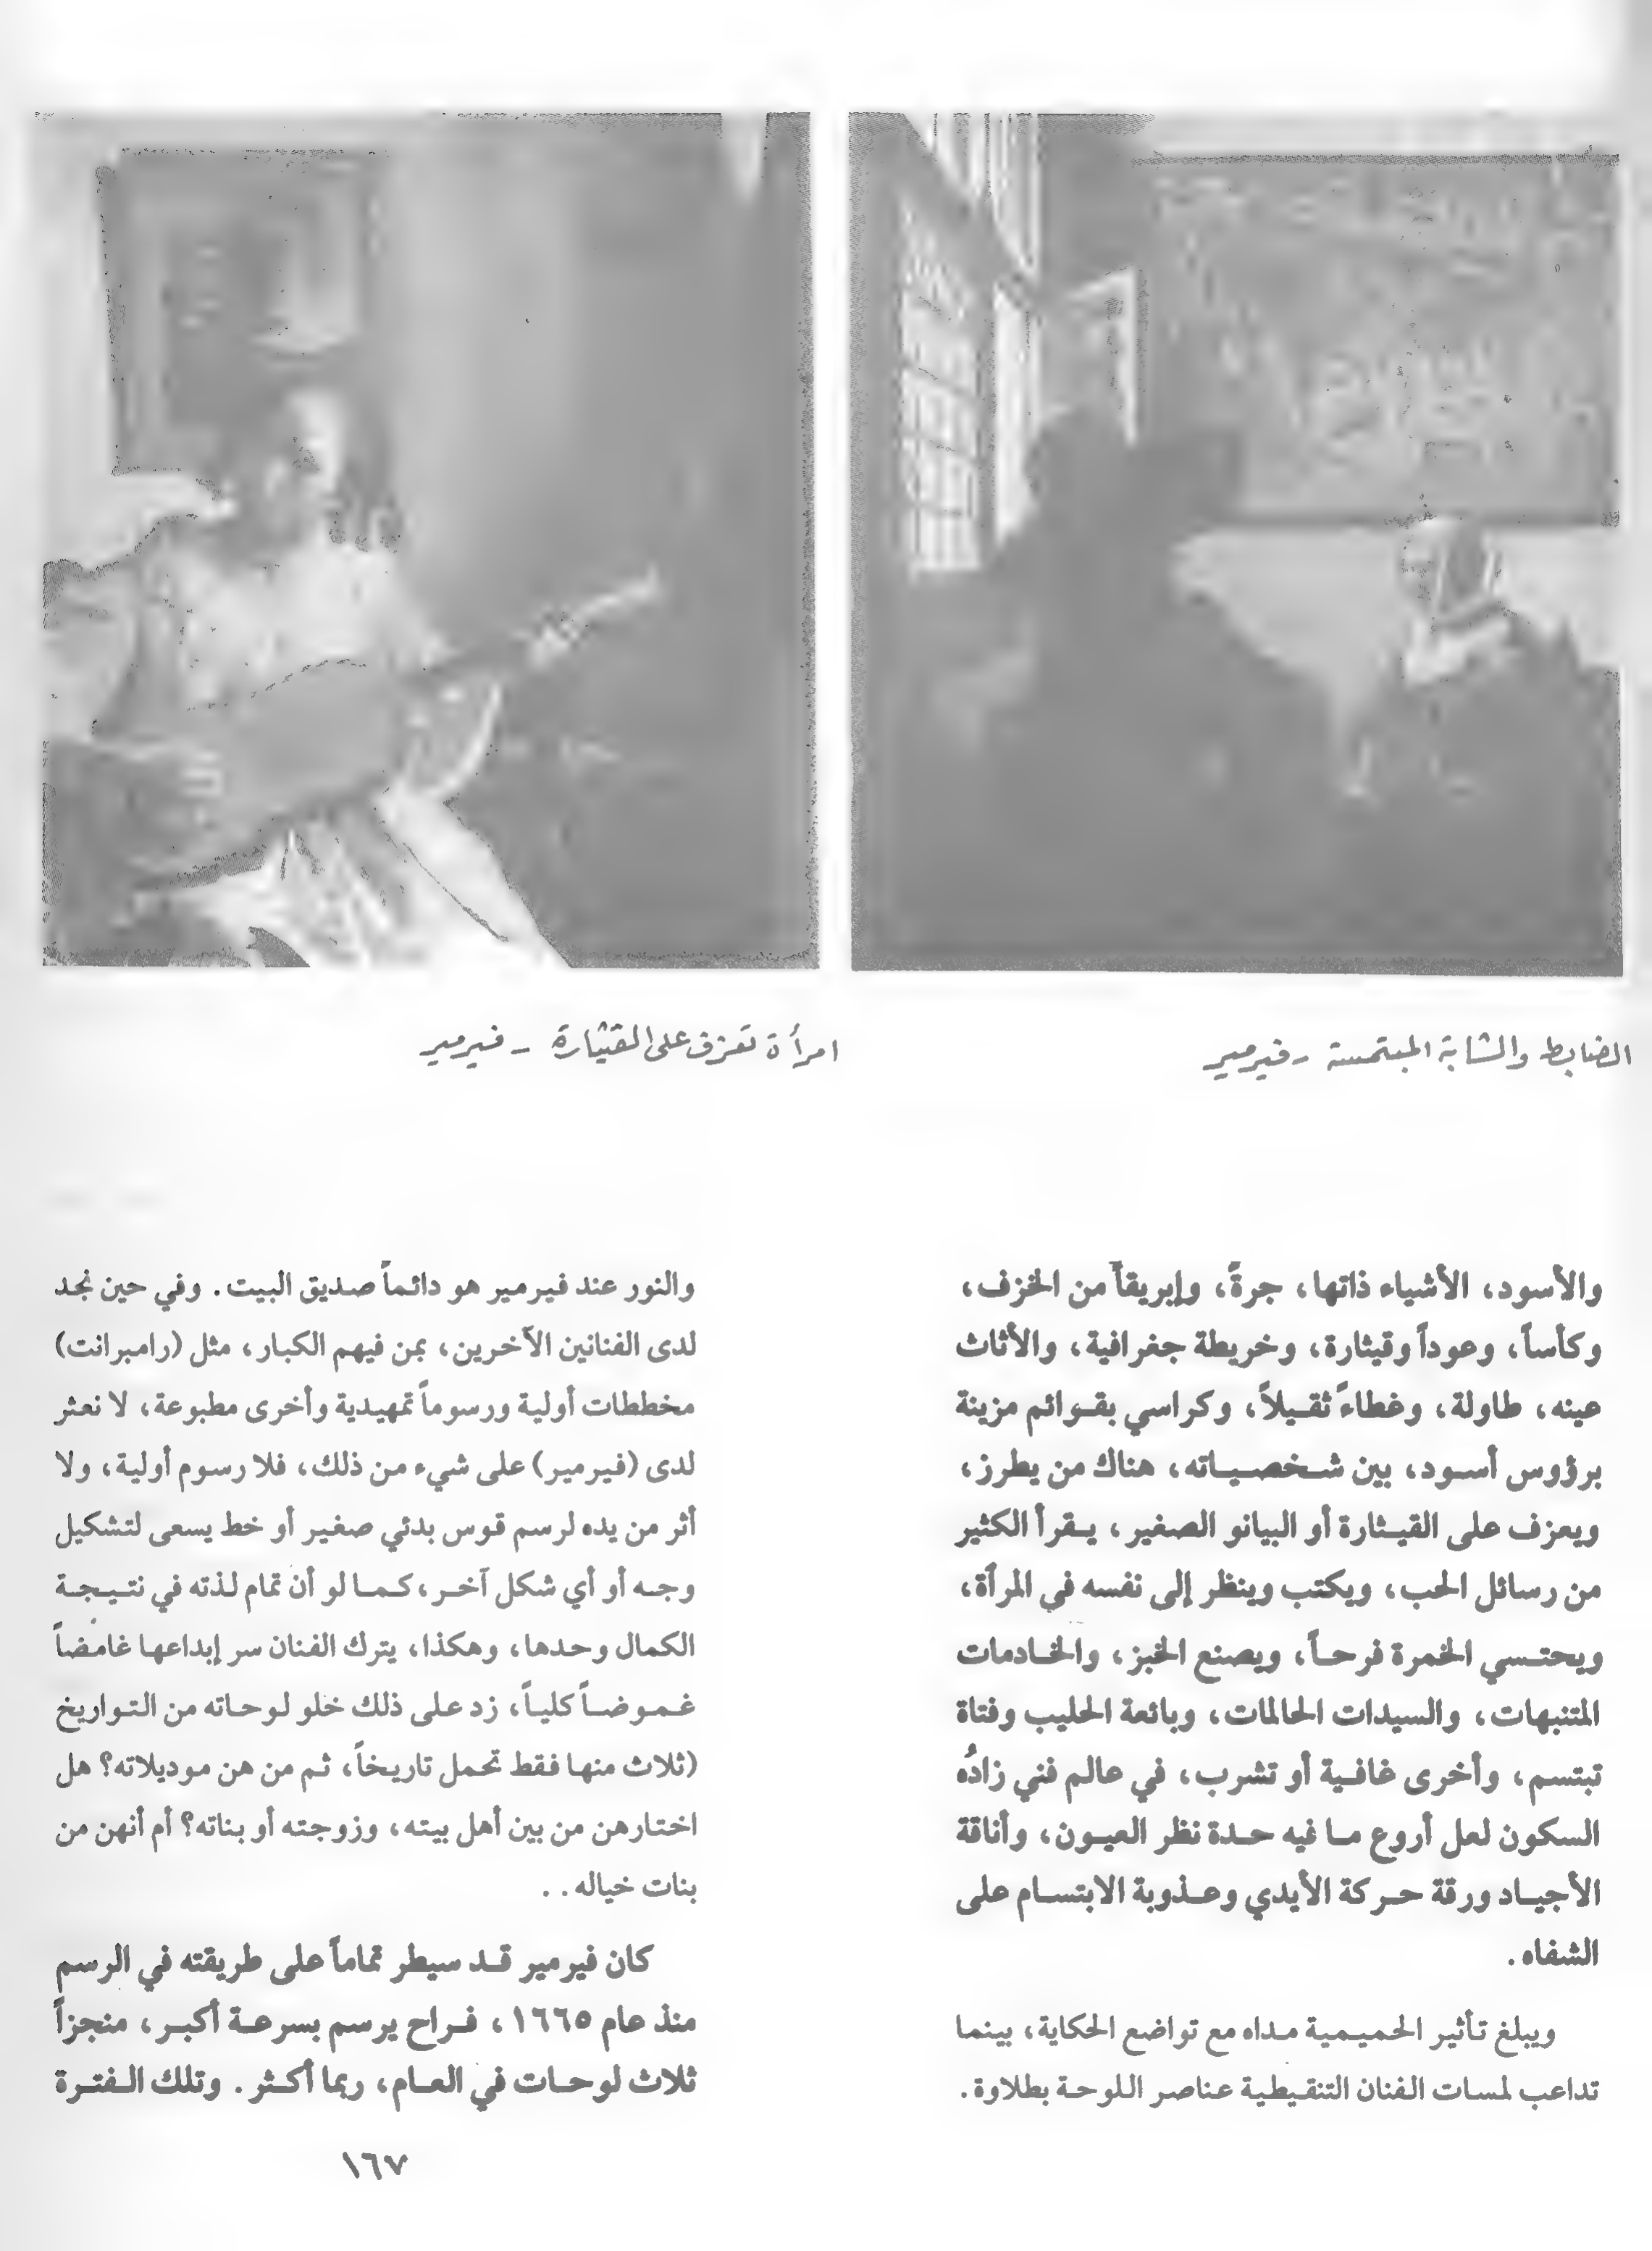 الضابط والشابة المبتمسة - فيرمير
امرأة تعزف على القيثارة - فيرمير
والأسود، الأشياء ذاتها، جرةً، وإبريقاً من الخزف،
وكأساً، وعوداً وقيثارة، وخريطة جغرافية، والأثاث
عينه، طاولة، وغطاءً ثقيلاً، وكراسي بقوائم مزينة
برؤوس أسود، بين شخصياته، هناك من يطرز،
ويعزف على القيثارة أو البيانو الصغير، يقرأ الكثير
من رسائل الحب، ويكتب وينظر إلى نفسه في المرآة،
ويحتسي الخمرة فرحاً، ويصنع الخبز، والخادمات
المتنبهات، والسيدات الحالمات، وبائعة الحليب وفتاة
تبتسم، وأخرى غافية أو تشرب، في عالم فني زادُه
السكون لعل أروع ما فيه حدة نظر العيون، وأناقة
الأجياد ورقة حركة الأيدي وعذوبة الابتسام على
الشفاه.
ويبلغ تأثير الحميمية مداه مع تواضع الحكاية، بينما
تداعب لمسات الفنان التنقيطية عناصر اللوحة بطلاوة.
والنور عند فيرمير هو دائماً صديق البيت. وفي حين نجد
لدى الفنانين الآخرين، بمن فيهم الكبار، مثل (رامبرانت)
مخططات أولية ورسوماً تمهيدية وأخرى مطبوعة، لا نعثر
لدى (فيرمير) على شيء من ذلك، فلا رسوم أولية، ولا
أثر من يده لرسم قوس بدئي صغير أو خط يسعى لتشكيل
وجه أو أي شكل آخر، كما لو أن تمام لذته في نتيجة
الكمال وحدها، وهكذا، يترك الفنان سر إبداعها غامضاً
غموضاً كلياً، زد على ذلك خلو لوحاته من التواريخ
(ثلاث منها فقط تحمل تاريخاً، ثم من هن موديلاته؟ هل
اختارهن من بين أهل بيته، وزوجته أو بناته؟ أم أنهن من
بنات خياله..
كان فيرمير قد سيطر تماماً على طريقته في الرسم
منذ عام ١٦٦٥، فراح يرسم بسرعة أكبر، منجزاً
ثلاث لوحات في العام، ربما أكثر. وتلك الفترة
١٦٧